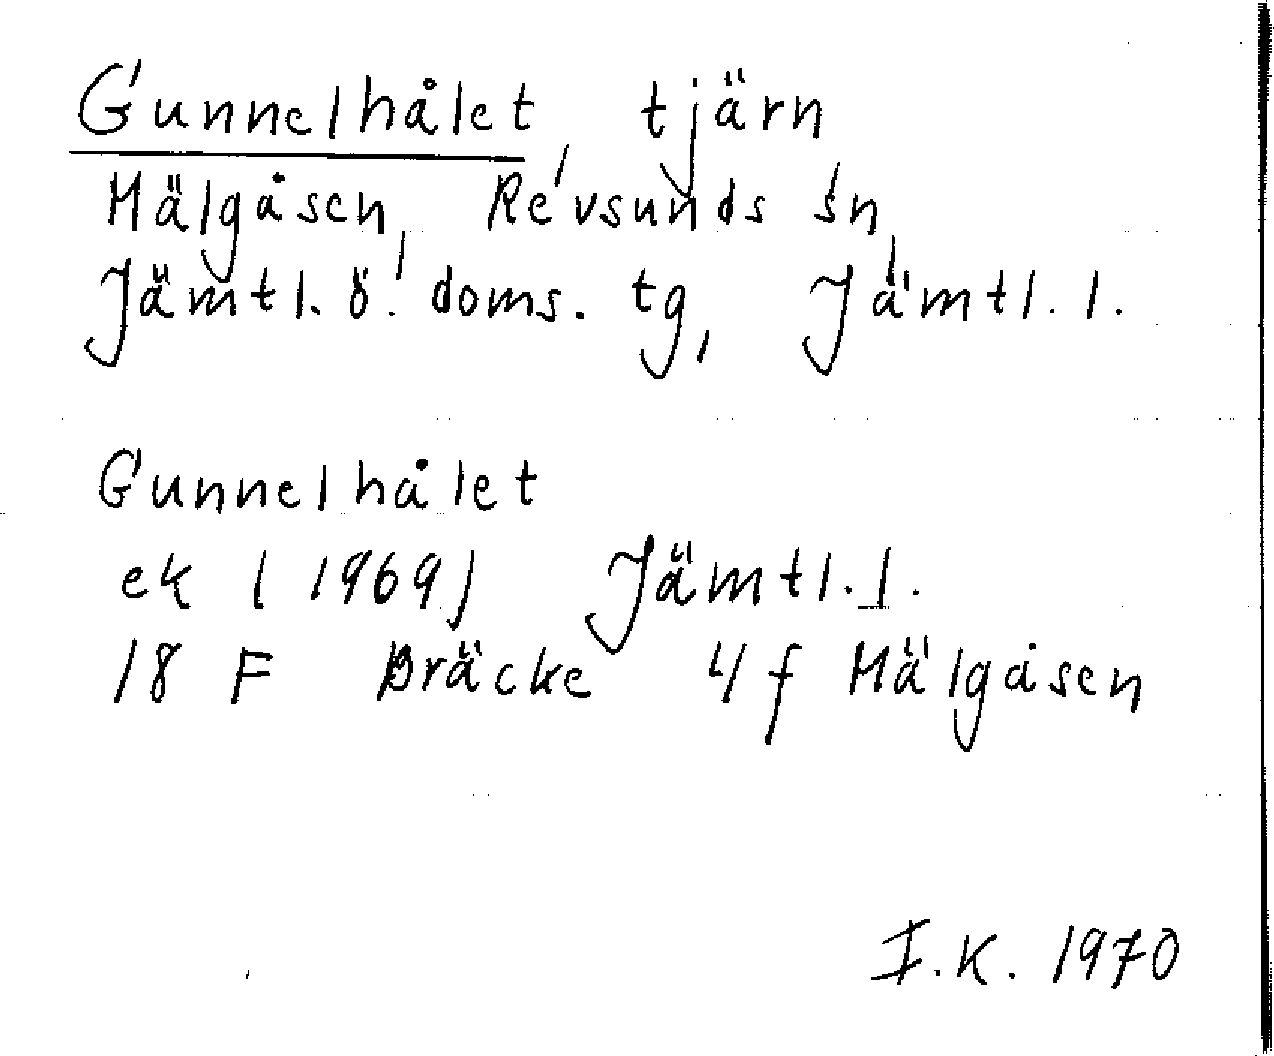 Gunnelhålet, tjärn
Mälgåsen, Revsunds sn,
Jämtl. ö. doms. tg, Jämtl. l.
Gunnelhålet
ek (1969) Jämtl. l.
18 F Bräcke 4 f Mälgåsen
I.K. 1970